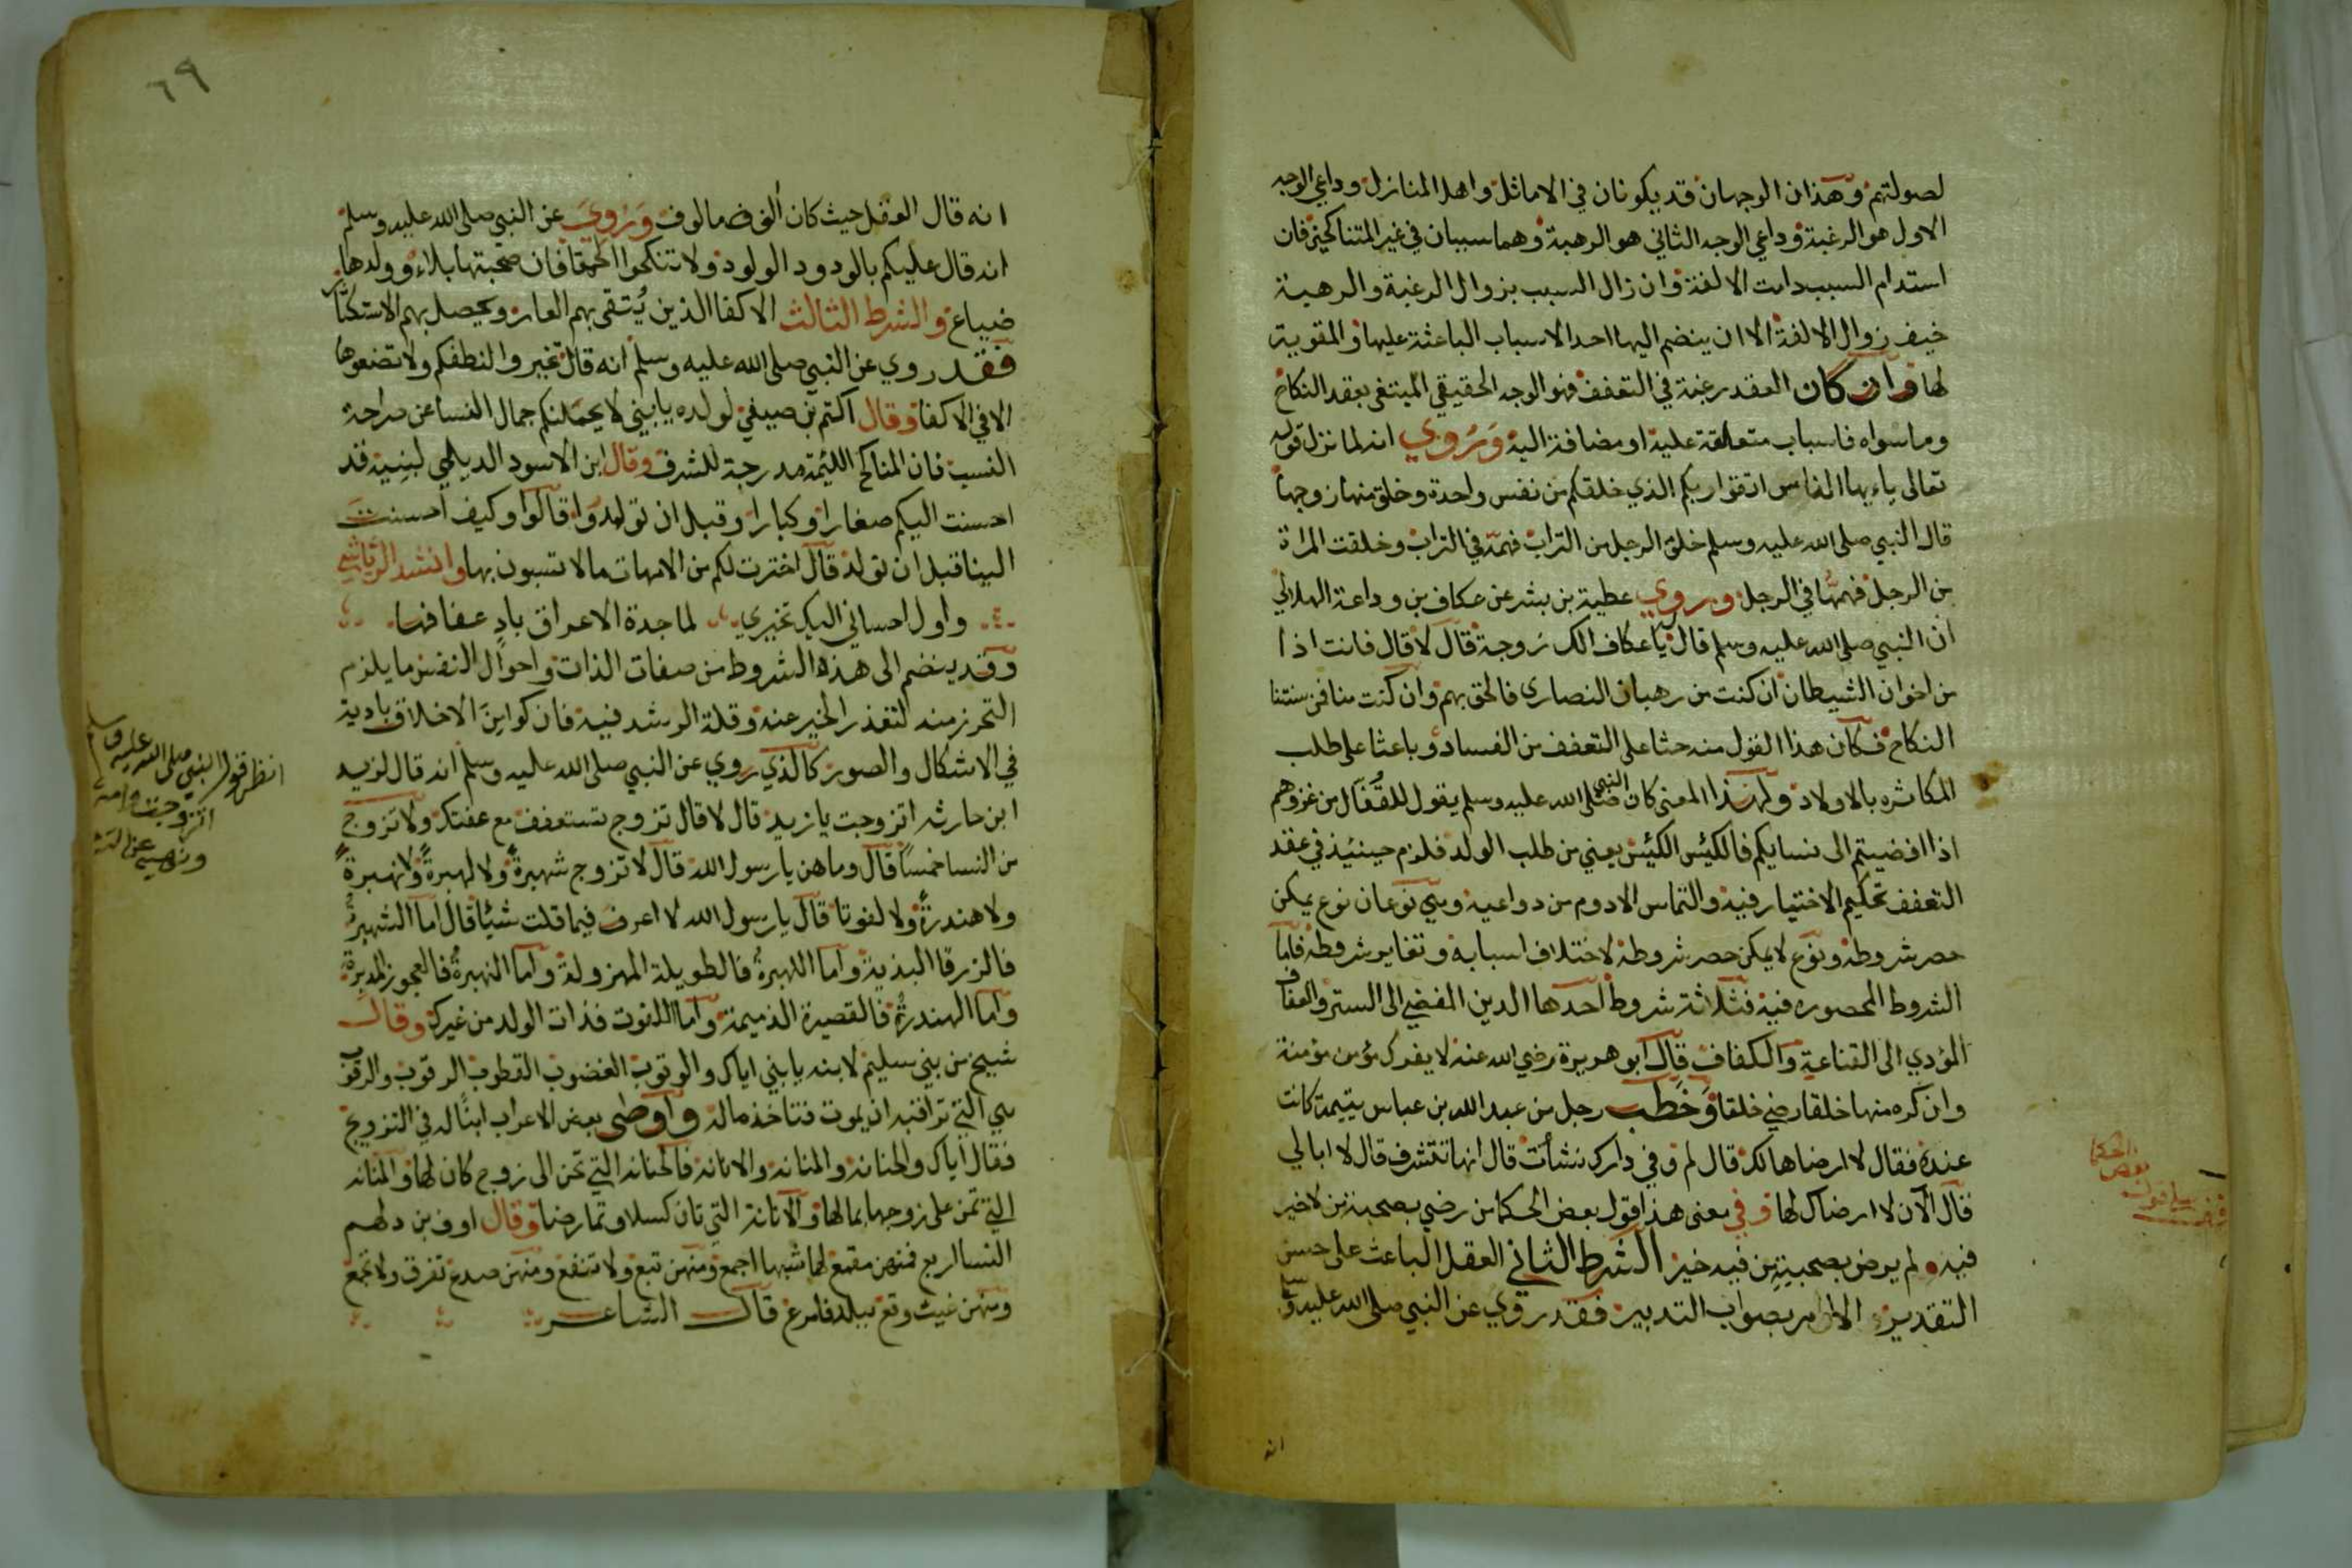 لصولتهم وهذان الوجهان قد يكونان في الاماثل واهل المنازل وداعي الوجه
الاول هو الرغبة وداعي الوجه الثاني هو الرهبة وهما سببان في غير المتناكحين فان
استدام السبب دامت الالفة وان زال السبب بزوال الرغبة والرهبة
خيف زوال الالفة الا ان ينضم اليها احد الاسباب الباعثة عليها والمقوية
لها وان كان العقد رغبة في التعفف فهو الوجه الحقيقي المبتغى بعقد النكاح
وما سواه فاسباب متعلقة عليه او مضافة اليه وروي انه لما نزل قوله
تعالى يا ءيها الناس اتقوا ربكم الذي خلقكم من نفس واحدة وخلق منها زوجها
قال النبي صلى الله عليه وسلم خلق الرجل من التراب فهمه في التراب وخلقت المراة
من الرجل فهمها في الرجل وروي عطية بن بشر عن عكاف بن وداعة الهلالي
ان النبي صلى الله عليه وسلم قال يا عكاف الك زوجة قال لا قال فانت اذا
من اخوان الشيطان ان كنت من رهبان النصارى فالحق بهم وان كنت منا فمن سنتنا
النكاح فكان هذا القول منه حثا على التعفف من الفساد وباعثا على طلب
المكاثره بالاولاد ولهذا المعنى كان النبي صلى الله عليه وسلم يقول للقفال من غزوهم
اذا افضيتم الى نسايكم فالكيس الكيس يعني من طلب الولد فلزم حينئذ في عقد
التعفف تحكيم الاختيار فيه والتماس الادوم من دواعيه وهي نوعان نوع يمكن
حصر شروطه ونوع لا يمكن حصر شروطه لاختلاف اسبابه وتغاير شروطه فاما
الشروط المحصوره فيه فثلاثة شروط احدها الدين المفضي الى الستر والعفاف
المؤدي الى القناعة والكفاف قال ابو هريرة رضي الله عنه لا يفرك مؤمن مؤمنة
وان كره منها خلقا رضي خلقا وخطب رجل من عبد الله بن عباس يتيمة كانت
عنده فقال لا ارضاها لك قال لم وفي دارك نشأت قال انها تتشرف قال لا ابالي
فقال الآن لا ارضاك لها وفي معنى هذا قول بعض الحكما من رضي بصحبة من لا خير
فيه لم يرض بصحبته من فيه خير الشرط الثاني العقل الباعث على حسن
التقدير الامر بصواب التدبير فقد روي عن النبي صلى الله عليه وسلم
انه
بعض الحكما
٦٩
انه قال العقل حيث كان ألوف مالوف وروي عن النبي صلى الله عليه وسلم
انه قال عليكم بالودود الولود ولا تنكحوا الحمقا فان صحبتها بلاء وولدها
ضياع والشرط الثالث الاكفا الذين يتقى بهم العار ويحصل بهم الاستكثار
فقد روي عن النبي صلى الله عليه وسلم انه قال تخيروا لنطفكم ولا تضعوها
الا في الاكفا وقال اكثم بن صيفي لولده يا بني لا يحملنكم جمال النسا عن صراحة
النسب فان المناكح اللئيمة مدرجة للشرف وقال ابن الاسود الديلمي لبنيه قد
احسنت اليكم صغارا وكبارا وقبل ان تولدوا قالوا وكيف احسنت
الينا قبل ان نولد قال اخترت لكم من الامهات ما لا تسبون بها وانشد الرياشي
واول احساني اليك تخيري لماجدة الاعراق باد عفافها
وقد ينضم الى هذه الشروط من صفات الذات واحوال النفس ما يلزم
التحرز منه لتعذر الخير عنه وقلة الرشد فيه فان كوامن الاخلاق بادية
في الاشكال والصور كالذي روي عن النبي صلى الله عليه وسلم انه قال لزيد
ابن حارثه اتزوجت يا زيد قال لا قال تزوج تستعفف مع عفتك ولا تزوج
من النسا خمسا قال وما هن يا رسول الله قال لا تزوج شهبرة ولا لهبرة ولا نهبرة
ولا هندرة ولا لفوتا قال يا رسول الله لا اعرف فيما قلت شيئا قال اما الشهبرة
فالزرقا البذية واما اللهبرة فالطويلة المهزولة واما النهبرة فالعجوز المدبرة
واما الهندرة فالقصيرة الذميمة واما اللفوت فذات الولد من غيرك وقال
شيخ من بني سليم لابنه يا بني اياك والرقوب الغضوب القطوب الرقوب والرقوب
هي التي تراقبه ان يموت فتاخذ ماله واوصى بعض الاعراب ابنا له في التزويج
فقال اياك والحنانه والمنانه والانانه فالحنانه التي تحن الى زوج كان لها والمنانه
التي تمن على زوجها بما لها والانانة التي تان كسلا وتمارضا وقال اوف بن دلهم
النسا اربع فمنهن مقمع لها شيها اجمع ومنهن تبع ولا تنفع ومنهن صدع تفرق ولا تجمع
ومنهن غيث وقع ببلد فامرع قال الشاعر
انظر قول النبي صلى الله عليه وسلم